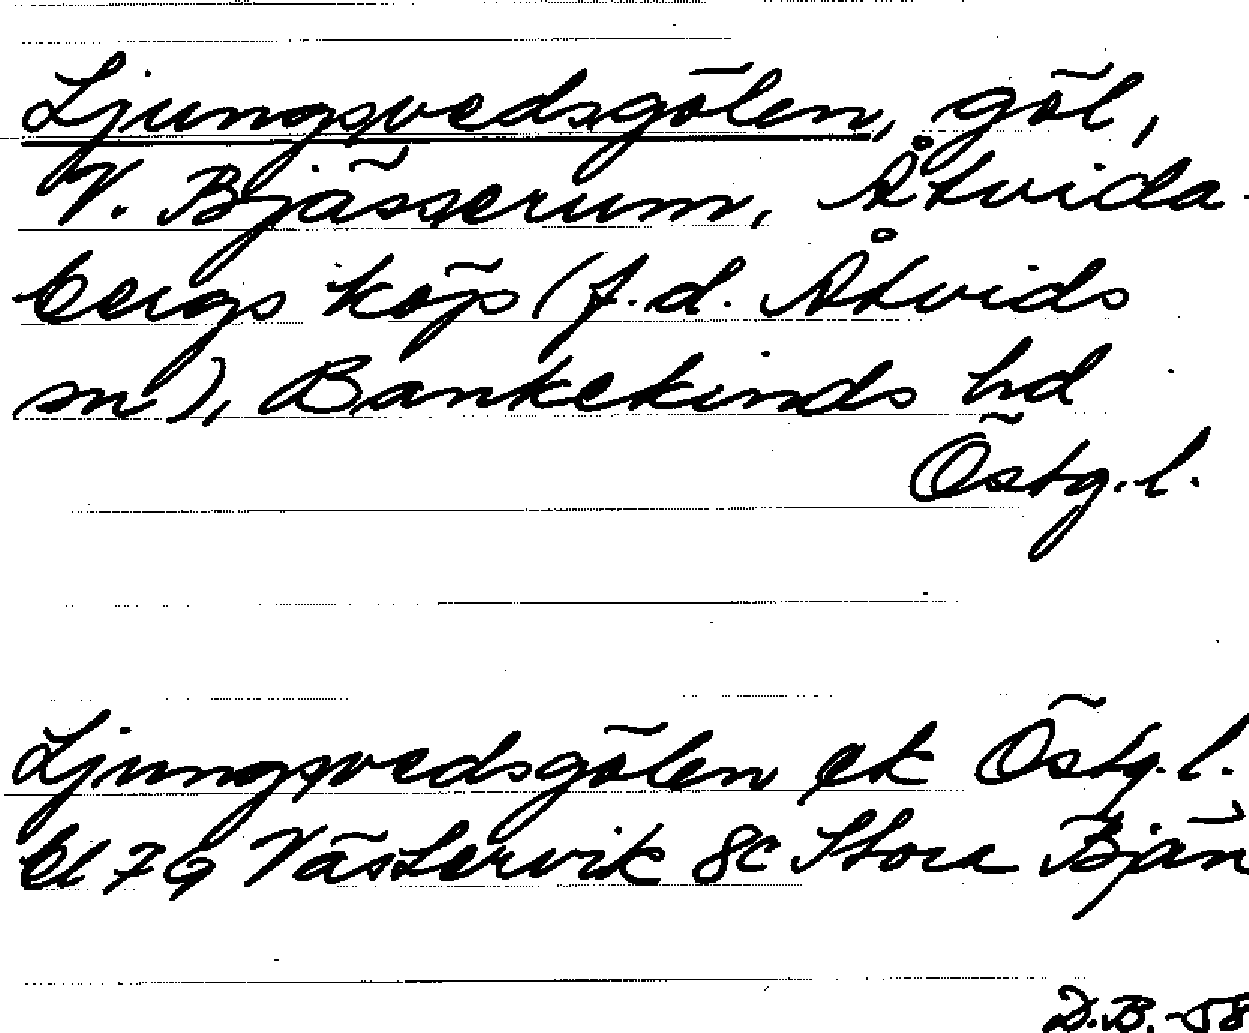 Ljungsvedsgölen, göl,
V. Bjässerum, Åtvida-
bergs köp (f.d. Åtvids
sn), Bankekinds hd
Östg.l.
Ljungsvedsgölen ek Östg.l.
bl 79 Västervik 8c Stora Bjän
D.B. -58